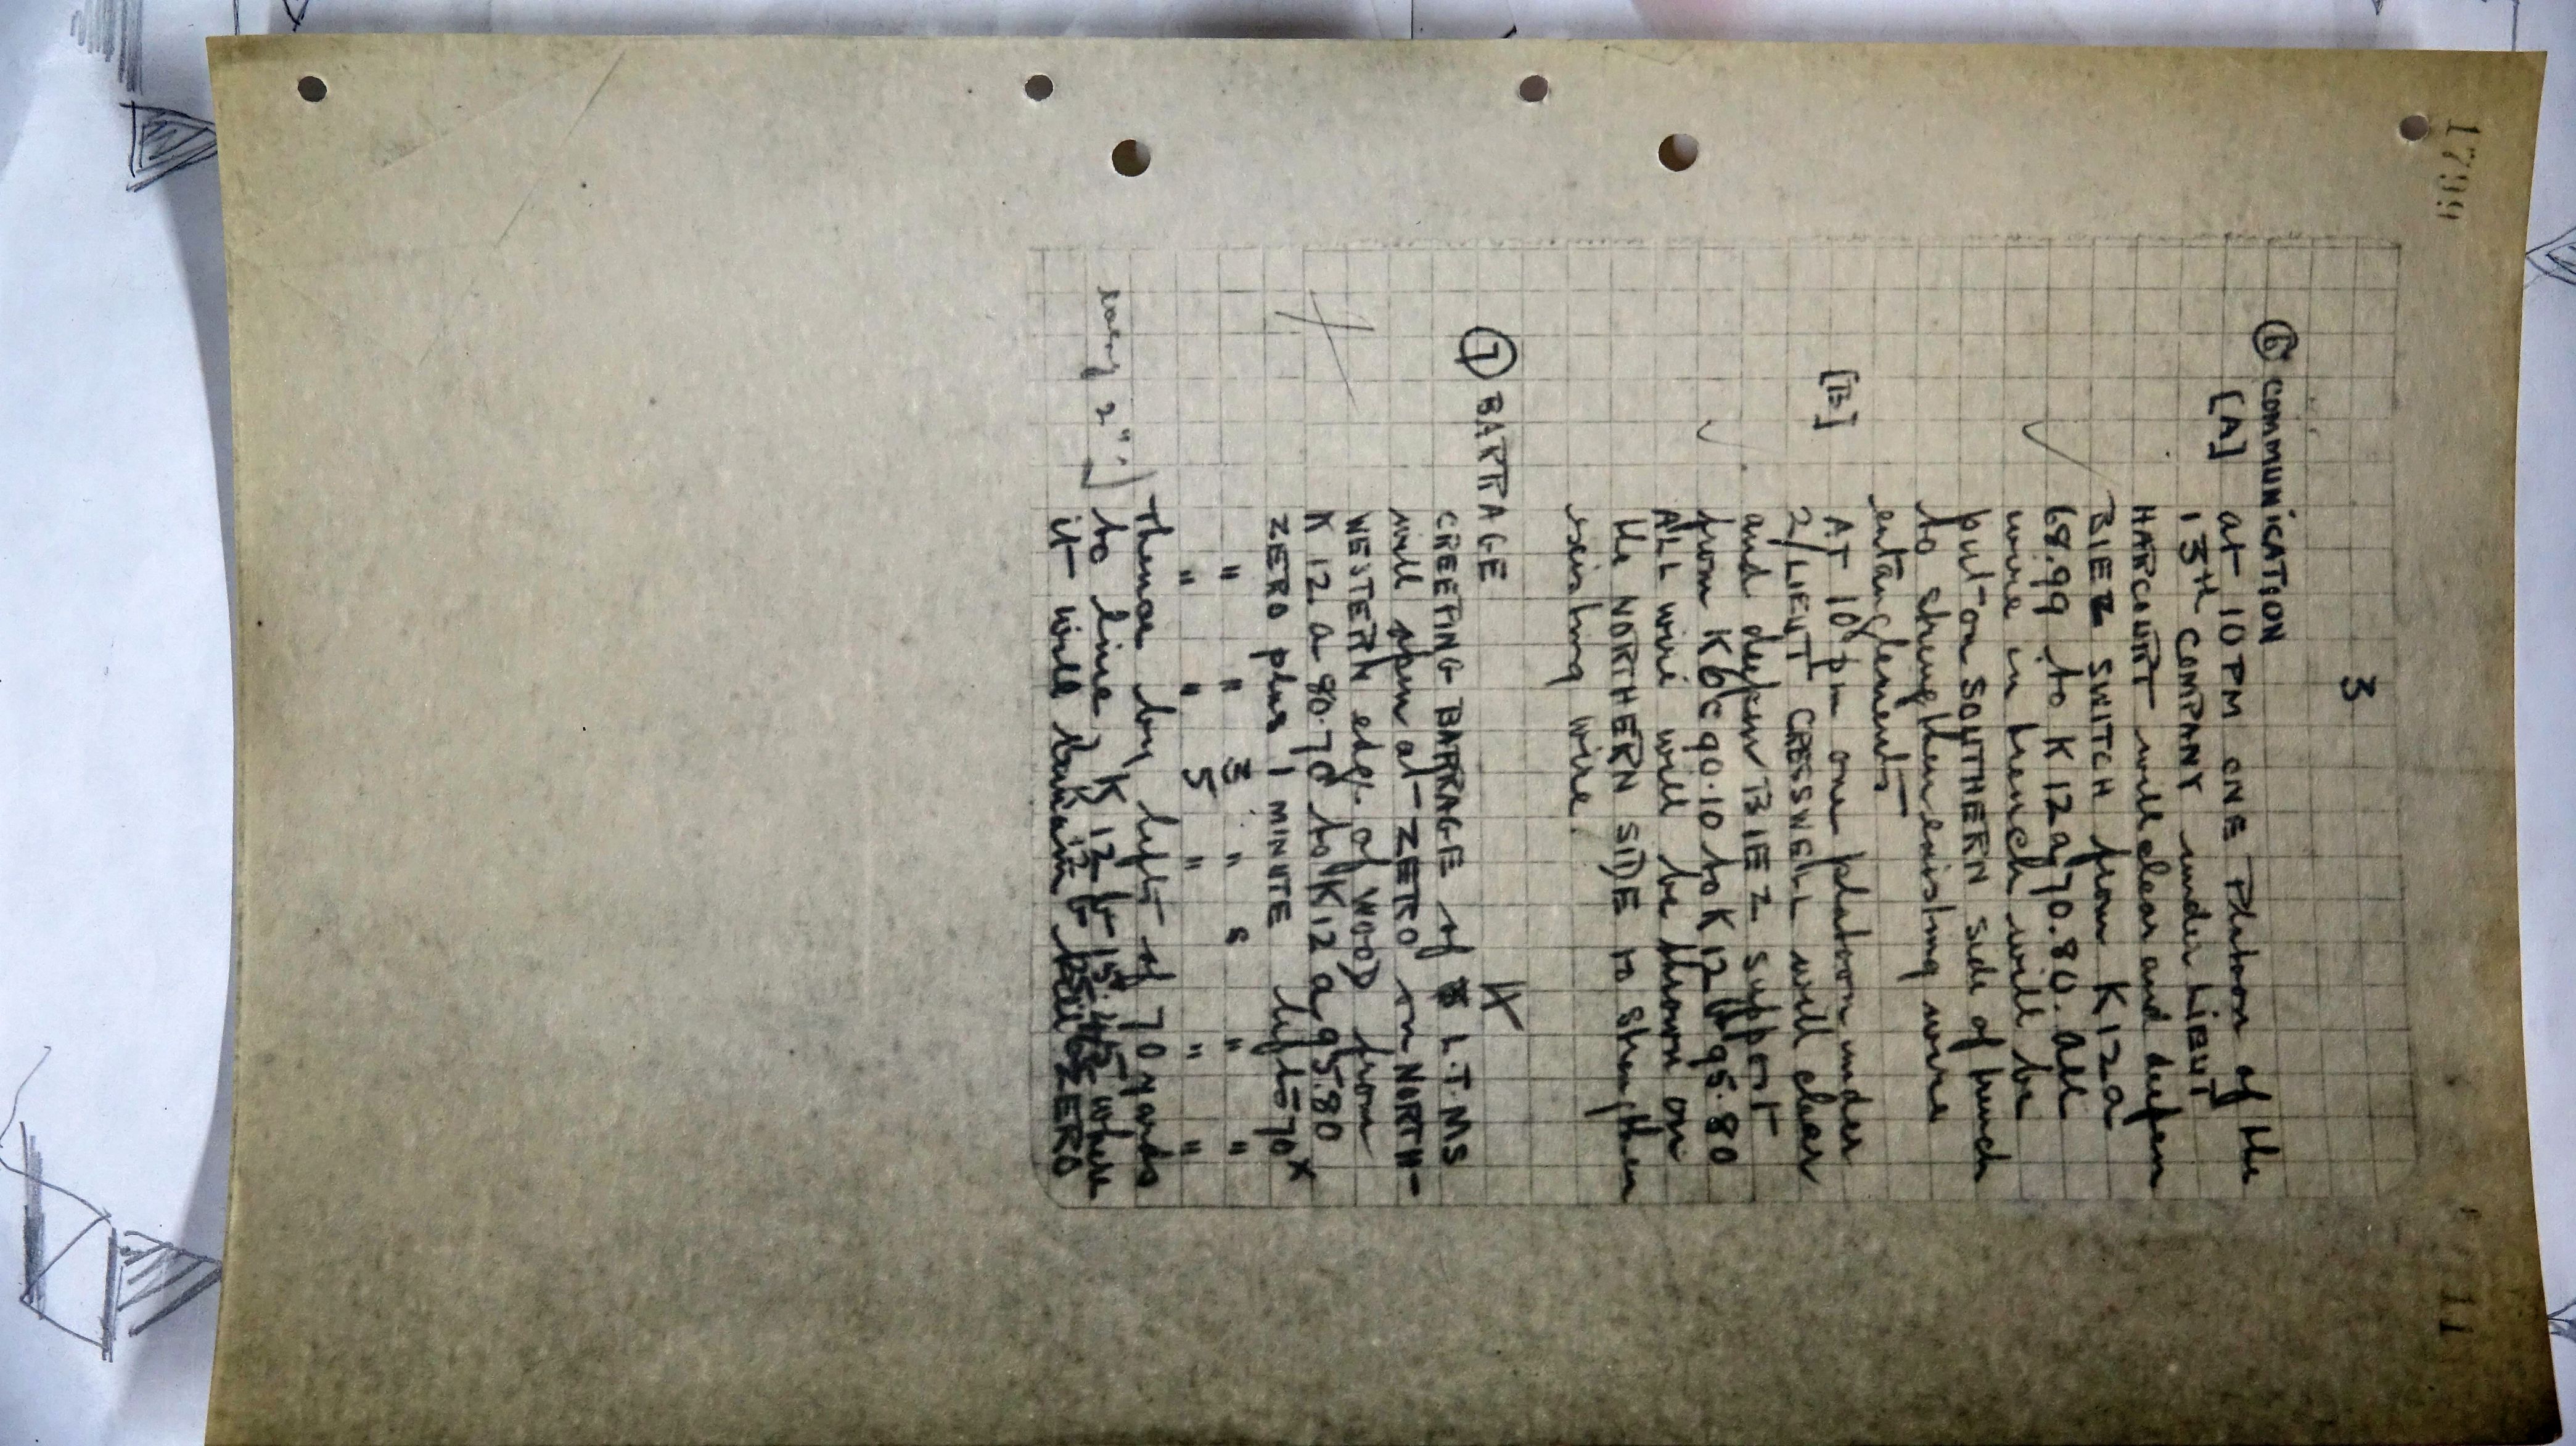 3
⑥ COMMUNICATION
[A] at 10 PM ONE Platoon of the
13TH COMPANY under LIEUT
HARCOURT will clear and deepen
BIEZ SWITCH from K12a
68.99 to K12a 70.80. All
wire in trench will be
put on SOUTHERN side of trench
to strengthen existing wire
entanglements
[B] AT 10 pm one platoon under
2/LIEUT CRESSWELL will clear
and deepen BIEZ support
from K6c 90.10 to K12 95.80
ALL wire will be thrown on
the NORTHERN SIDE to strengthen
existing wire.
⑦ BARRAGE
CREEPING BARRAGE of 4 L.T.MS
will open at ZERO on NORTH-
WESTERN edge of WOOD from
K12a 80.70 to K12a 95.80
ZERO plus 1 MINUTE lifts 70x
" " 3 " s " "
" " 5 " " "
every 2". Thence by lifts of 70 yards
to line K12b 15.45 where
it will remain till ZERO
1799